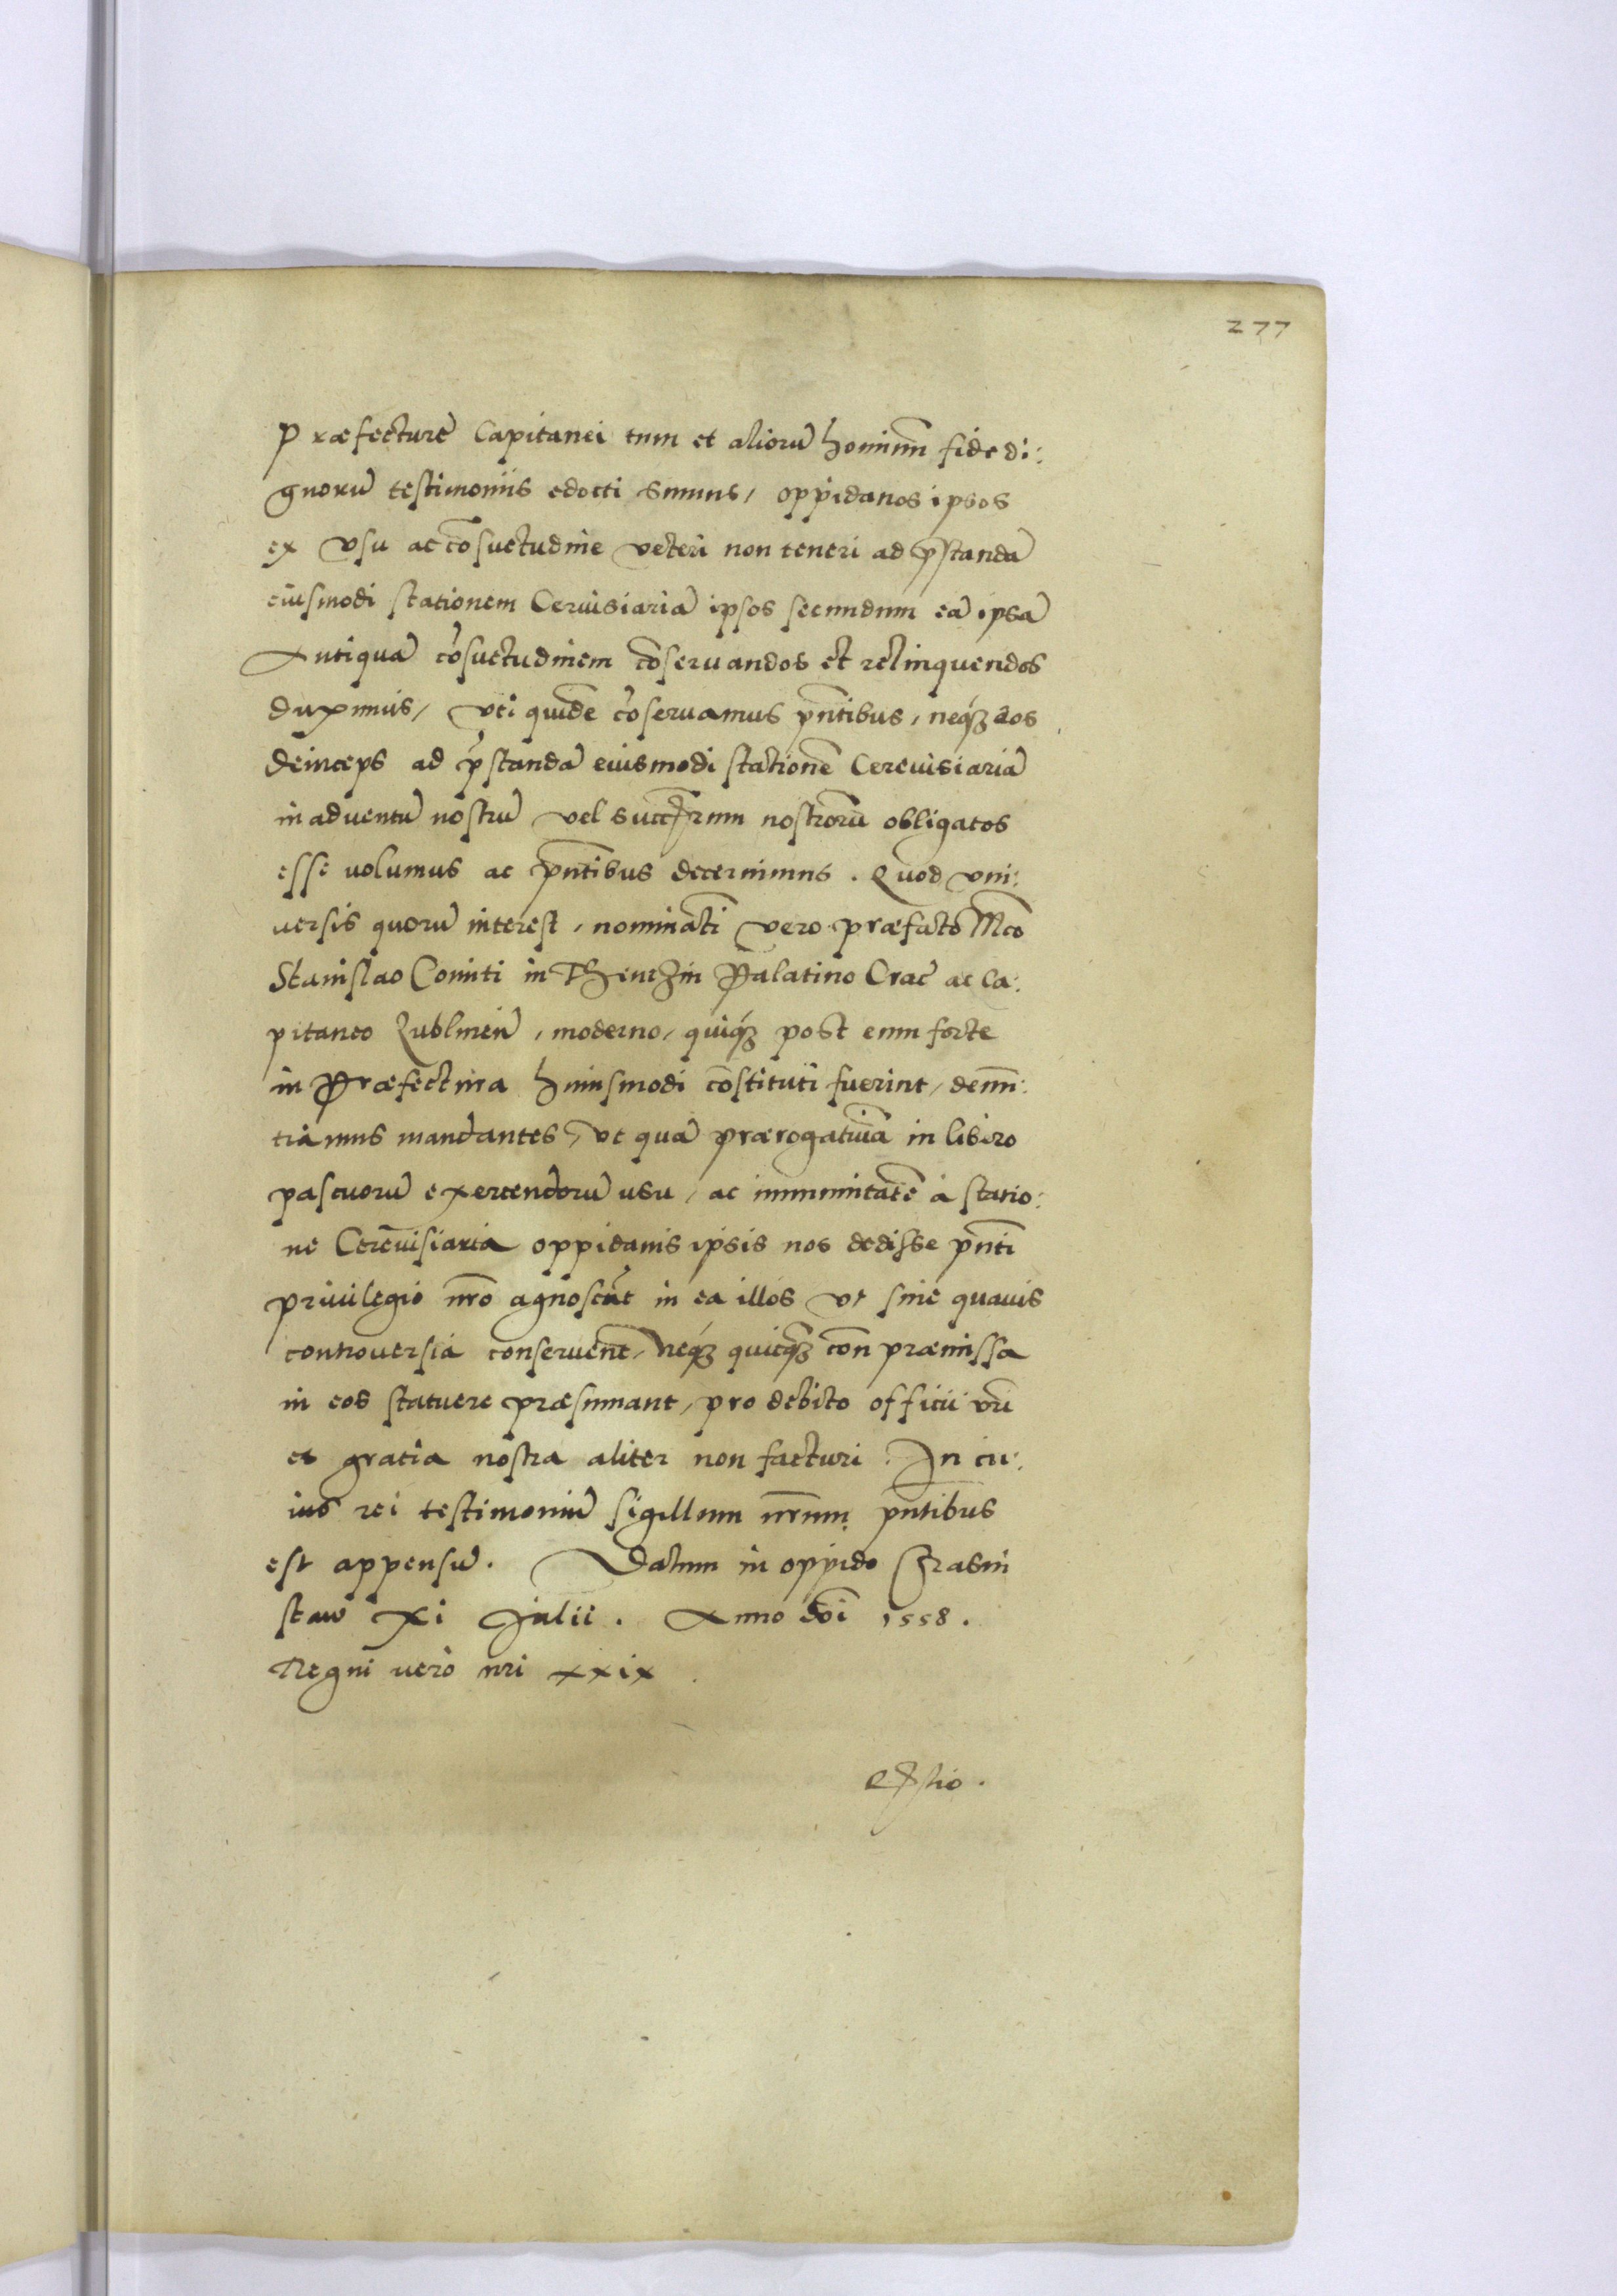 277
Præfecturē Capitanei tum et aliorū hominū fide di:
gnorū testimoniis edocti sumus, oppidanos ipsos
ex vsu ac cōsuetudine veteri non teneri ad p̄standā
eiusmodi stationem Ceruisiariā ipsos secundum eā ipsā
Antiquā cōsuetudinem cōseruandos et relinquendos
duximus, vti quidē cōseruamus pn̄tibus, neqꝫ eos
deinceps ad p̄standā eiusmodi stationē Cereuisiariā
in aduentū nostrū vel succ̄rum nostrorū obligatos
esse volumus ac pn̄tibus decernimus. Quod vni:
uersis quorū interest, nominatī vero præfato Mco
Stanislao Comiti in Thenczin Palatino Crac̄ ac Ca:
pitaneo Lublinen̄, moderno, quiqꝫ post eum forte
in Præfectura huiusmodi cōstituti fuerint, denun:
tiamus mandantes, vt quā prærogatiuā in libero
pascuorū exercendorū usu, ac immunitatē a statio:
ne Cereuisiaria oppidanis ipsis nos dedisse pn̄ti
priuilegio nr̄o agnoscūt in ea illos vt sine quauis
controuersia conseruent, neqꝫ quicqꝫ con̄ præmissa
in eos statuere præsumant, pro debito officii vr̄i
et gratia nostra aliter non facturi. In cu:
ius rei testimoniū sigillum nr̄um pn̄tibus
est appensū. Datum in oppido Crasni
staw xi Julii. Anno dōi 1558.
Regni vero nri xxix